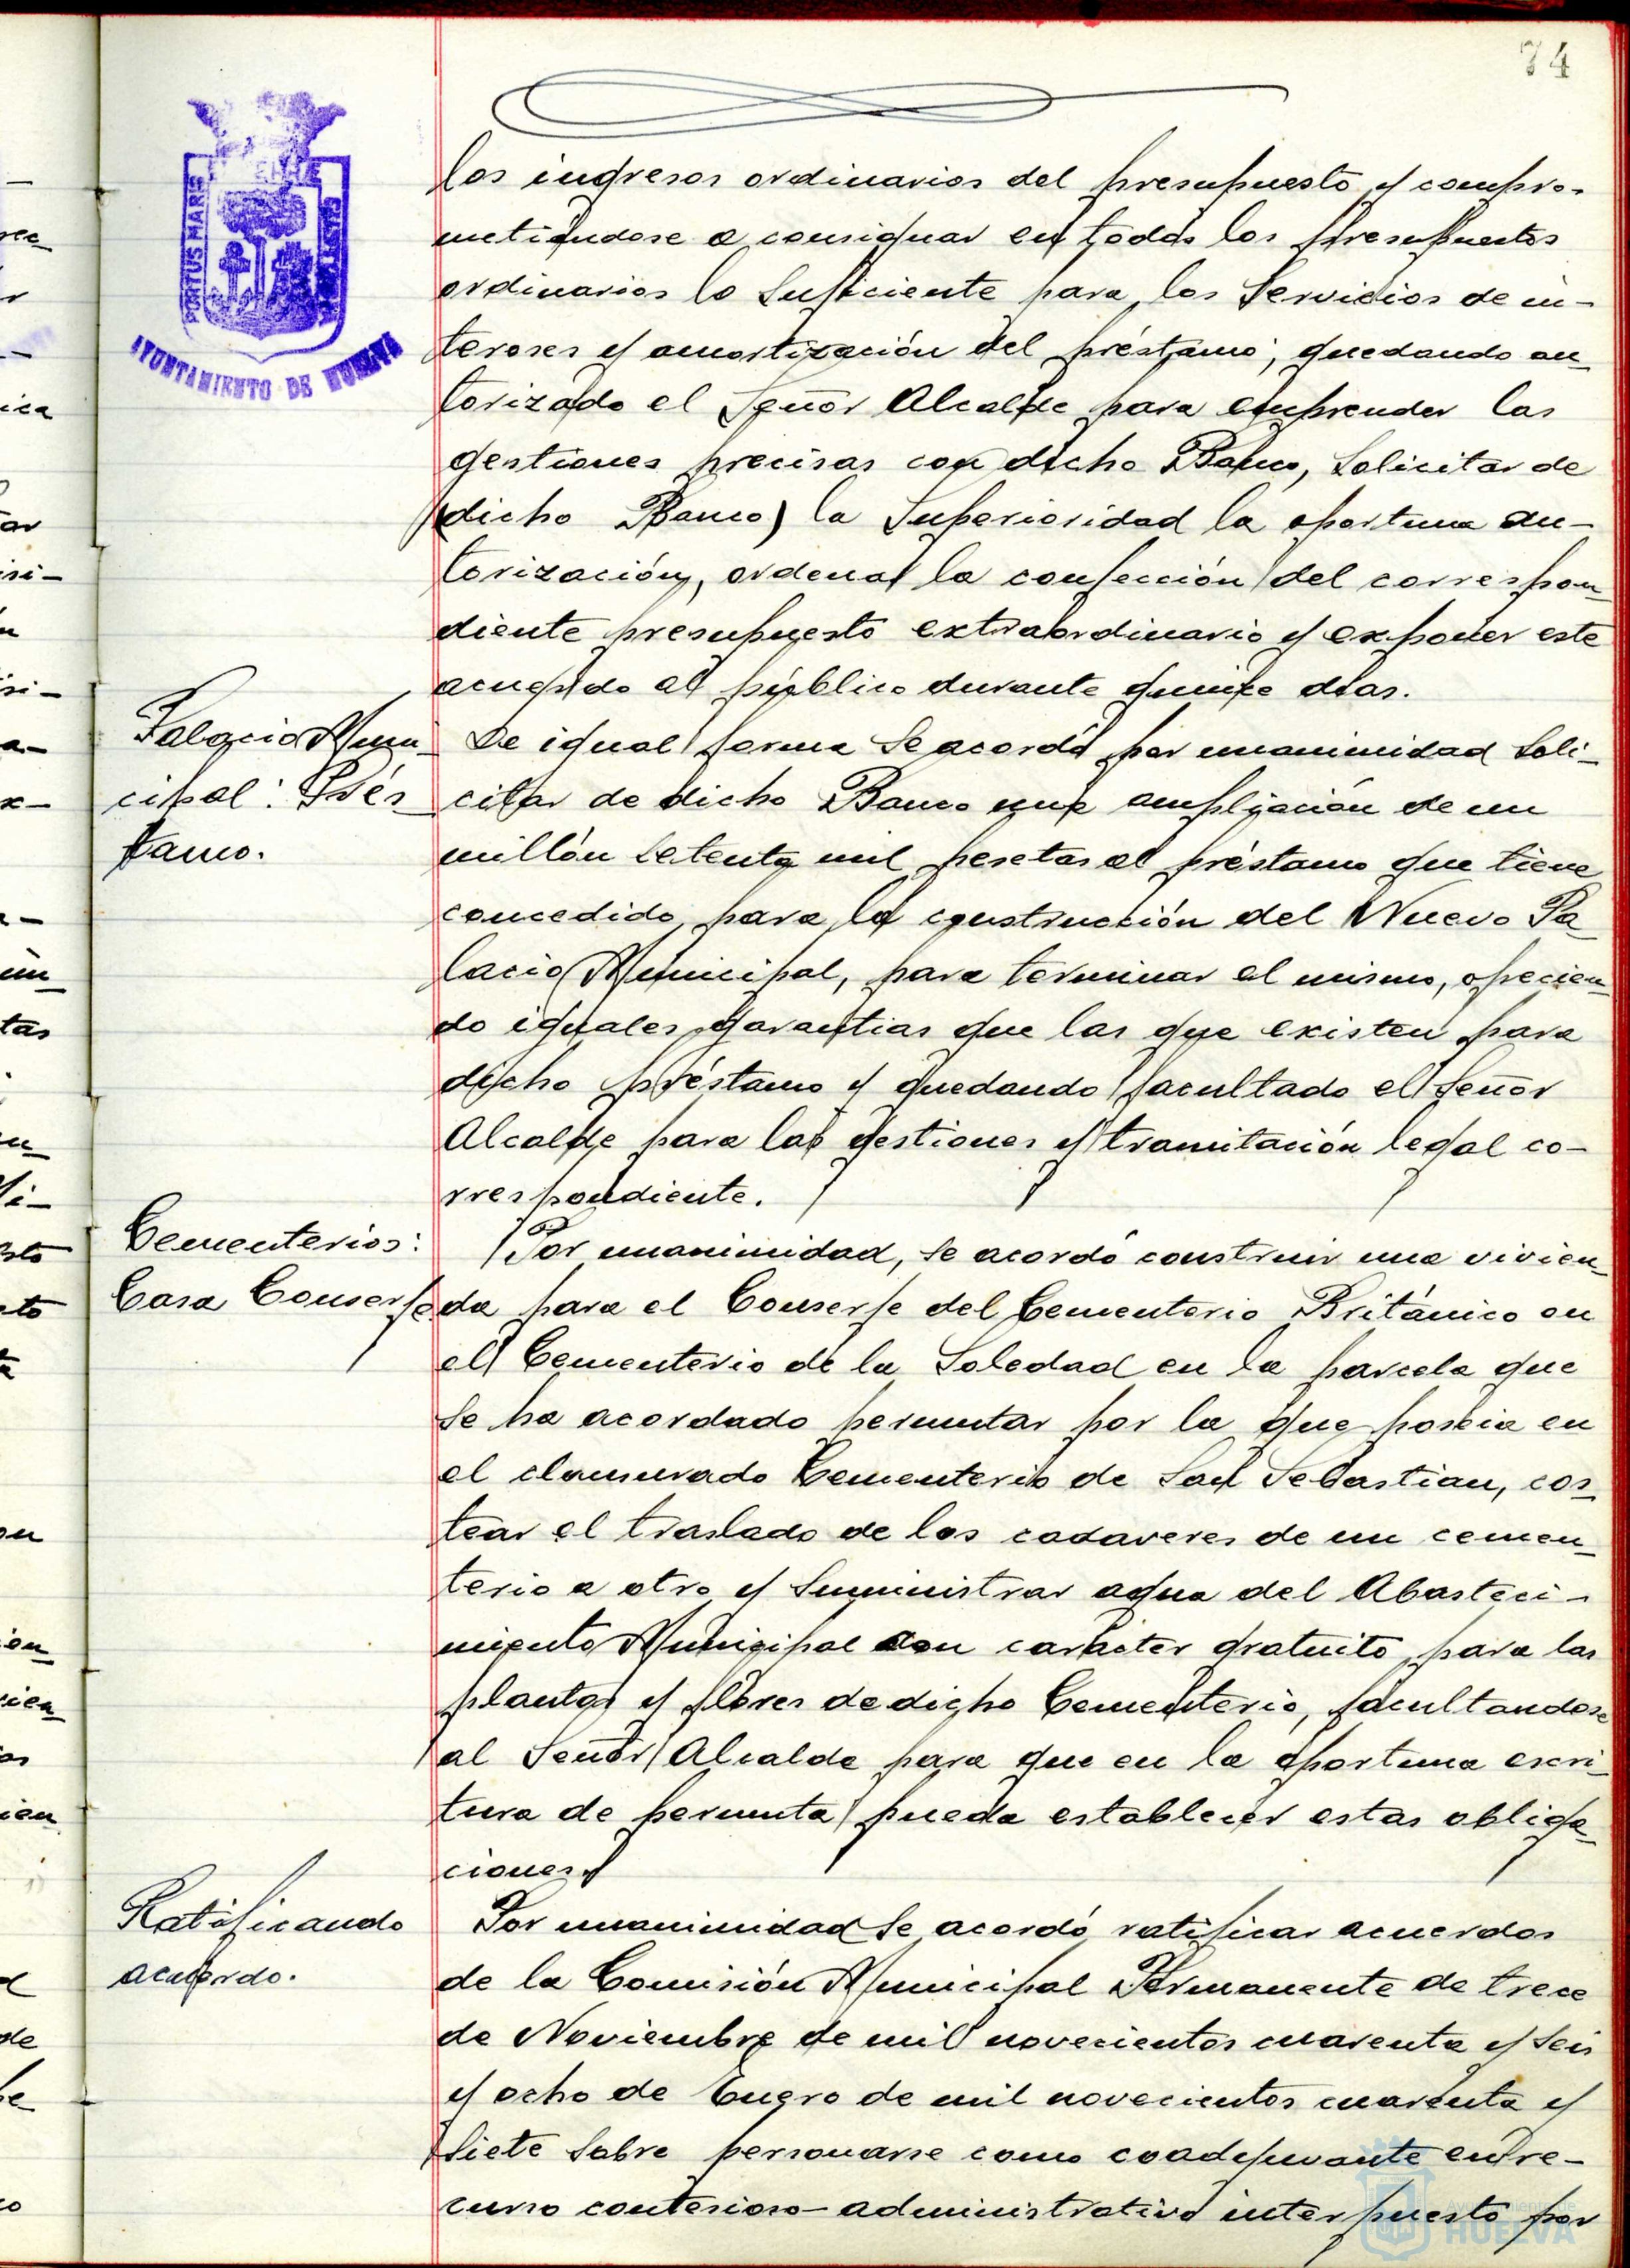 74
PORTUS MARIS
AYUNTAMIENTO DE HUELVA
los ingresos ordinarios del presupuesto y compro-
metiéndose a consignar en todos los presupuestos
ordinarios lo suficiente para los servicios de in-
tereses y amortización del préstamo; quedando au-
torizado el Señor Alcalde para emprender las
gestiones precisas con dicho Banco, solicitar de
(dicho Banco) la Superioridad la oportuna au-
torización, ordenar la confección del correspon-
diente presupuesto extraordinario y exponer este
acuerdo al público durante quince días.
Palacio Muni-
cipal: Prés-
tamo.
De igual forma se acordó por unanimidad soli-
citar de dicho Banco una ampliación de un
millón setenta mil pesetas al préstamo que tiene
concedido para la construcción del Nuevo Pa-
lacio Municipal, para terminar el mismo, ofrecien-
do iguales garantias que las que existen para
dicho préstamo y quedando facultado el Señor
Alcalde para las gestiones y tramitación legal co-
rrespondiente.
Cementerios:
Casa Conserje
Por unanimidad, se acordó construir una vivien-
da para el Conserje del Cementerio Británico en
el Cementerio de la Soledad en la parcela que
se ha acordado permutar por la que poseia en
el clausurado Cementerio de San Sebastian, cos-
tear el traslado de los cadaveres de un cemen-
terio a otro y suministrar agua del Abasteci-
miento Municipal con carácter gratuito para las
plantas y flores de dicho Cementerio, facultandose
al Señor Alcalde para que en la oportuna escri-
tura de permuta pueda establecer estas obliga-
ciones.
Ratificando
acuerdo.
Por unanimidad se acordó ratificar acuerdos
de la Comisión Municipal Permanente de trece
de Noviembre de mil novecientos cuarenta y seis
y ocho de Enero de mil novecientos cuarenta y
siete sobre personarse como coadyuvante en re-
curso contencioso-administrativo interpuesto por
Ayuntamiento de
HUELVA